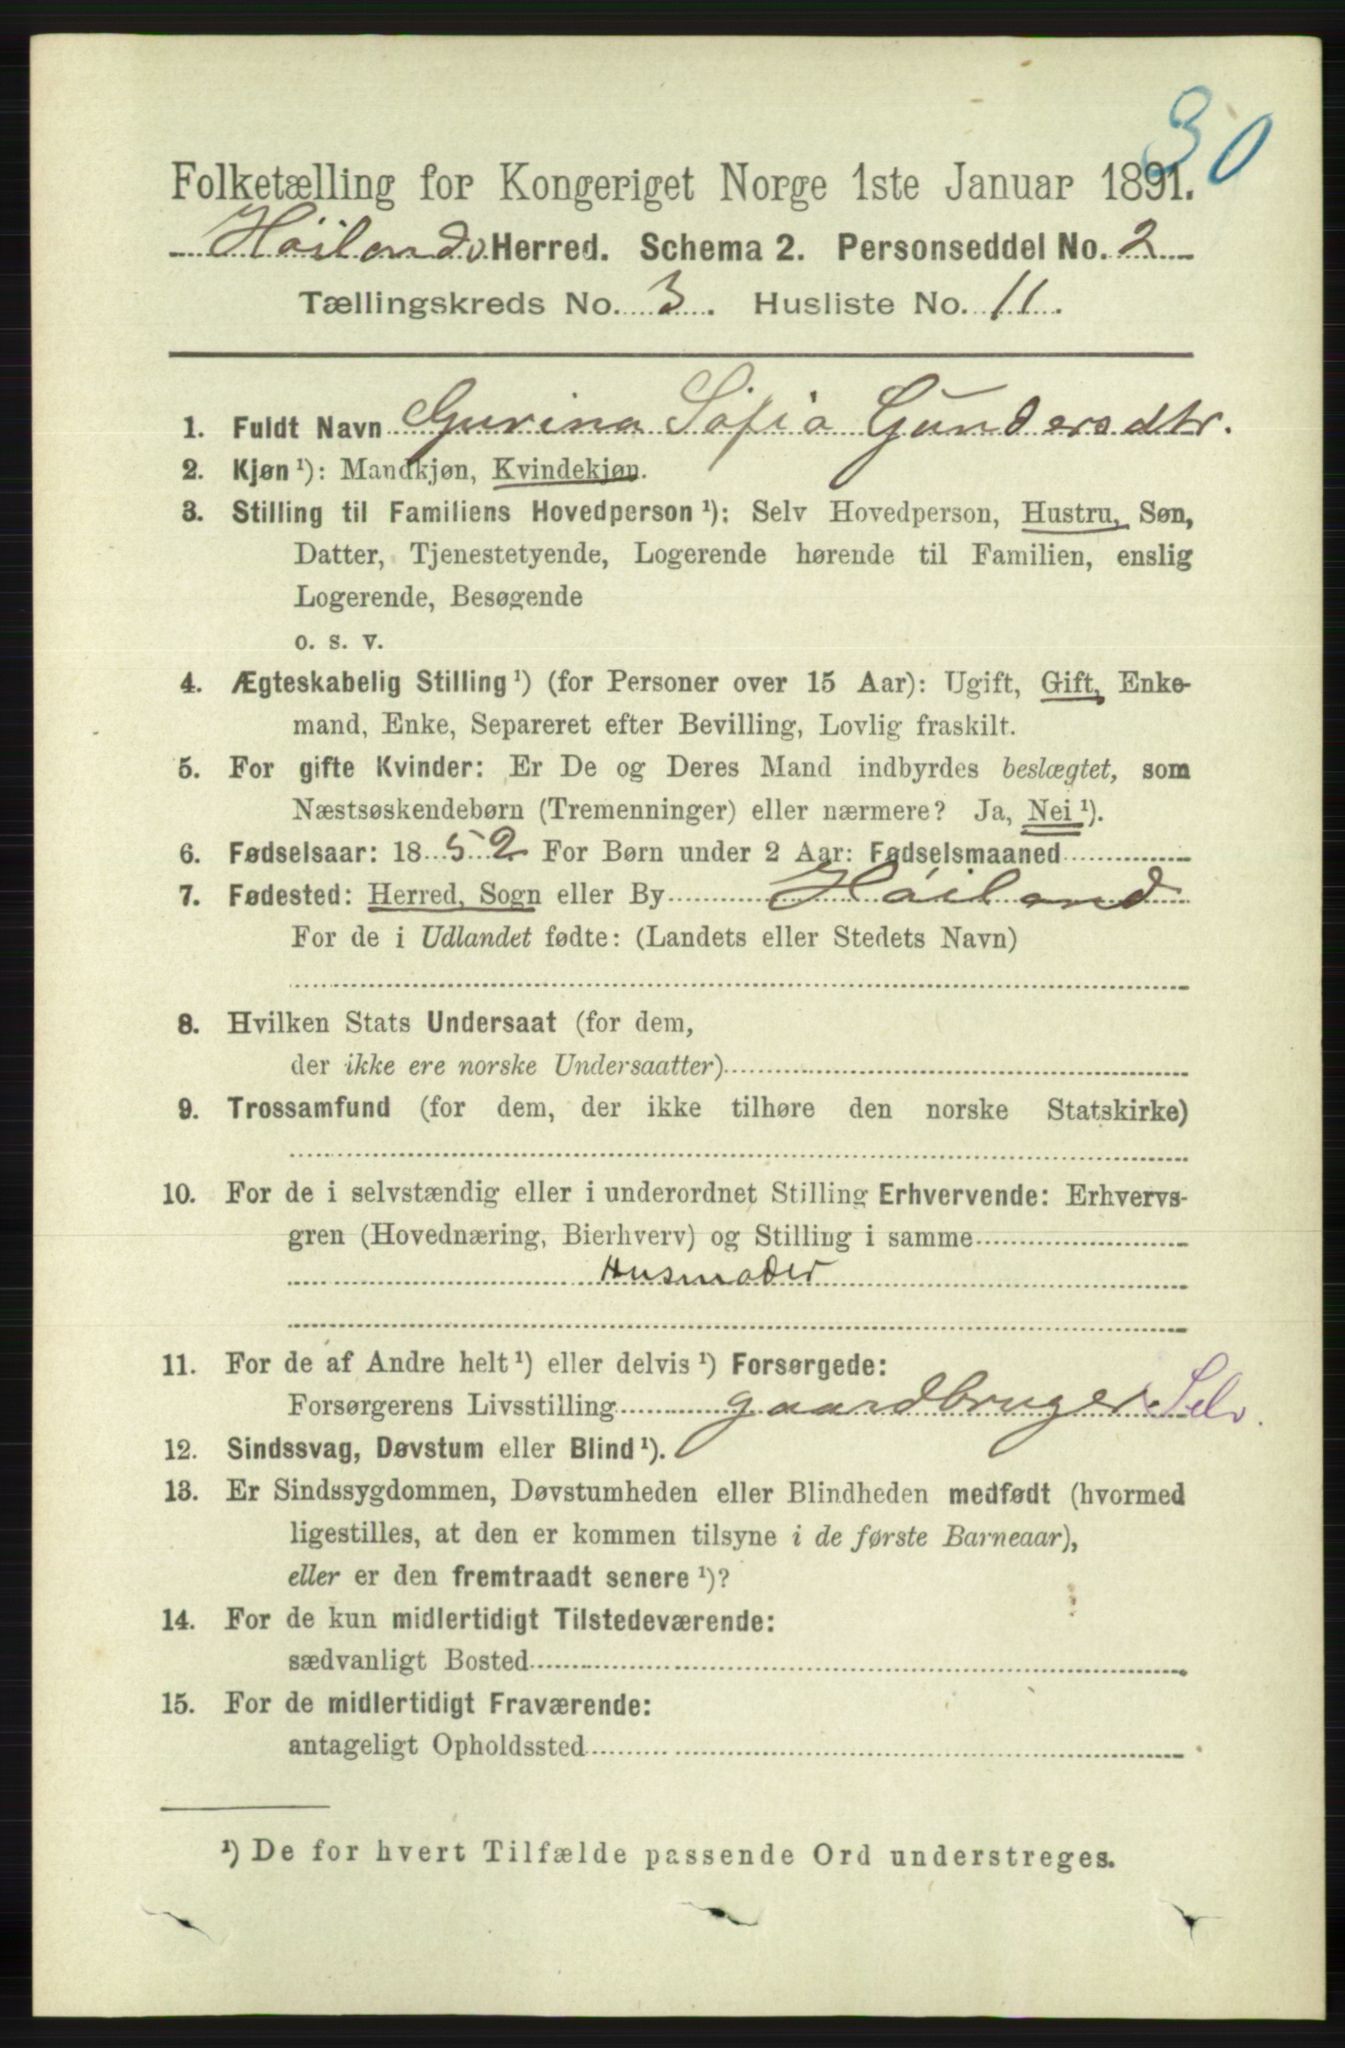 30
Folketælling for Kongeriget Norge 1ste Januar 1891.
Høilands Herred. Schema 2. Personseddel No. 2
Tællingskreds No. 3. Husliste No. 11.
1. Fuldt Navn Gurina Sofia Gundersdtr.
2. Kjøn ¹): Mandkjøn, Kvindekjøn.
3. Stilling til Familiens Hovedperson ¹): Selv Hovedperson, Hustru, Søn,
Datter, Tjenestetyende, Logerende hørende til Familien, enslig
Logerende, Besøgende
o. s. v.
4. Ægteskabelig Stilling ¹) (for Personer over 15 Aar): Ugift, Gift, Enke-
mand, Enke, Separeret efter Bevilling, Lovlig fraskilt.
5. For gifte Kvinder: Er De og Deres Mand indbyrdes beslægtet, som
Næstsøskendebørn (Tremenninger) eller nærmere? Ja, Nei ¹).
6. Fødselsaar: 1852 For Børn under 2 Aar: Fødselsmaaned
7. Fødested: Herred, Sogn eller By Høiland
For de i Udlandet fødte: (Landets eller Stedets Navn)
8. Hvilken Stats Undersaat (for dem,
der ikke ere norske Undersaatter)
9. Trossamfund (for dem, der ikke tilhøre den norske Statskirke)
10. For de i selvstændig eller i underordnet Stilling Erhvervende: Erhvervs-
gren (Hovednæring, Bierhverv) og Stilling i samme
Husmoder
11. For de af Andre helt ¹) eller delvis ¹) Forsørgede:
Forsørgerens Livsstilling gaardbruger Selv.
12. Sindssvag, Døvstum eller Blind ¹).
13. Er Sindssygdommen, Døvstumheden eller Blindheden medfødt (hvormed
ligestilles, at den er kommen tilsyne i de første Barneaar),
eller er den fremtraadt senere ¹)?
14. For de kun midlertidigt Tilstedeværende:
sædvanligt Bosted
15. For de midlertidigt Fraværende:
antageligt Opholdssted
¹) De for hvert Tilfælde passende Ord understreges.